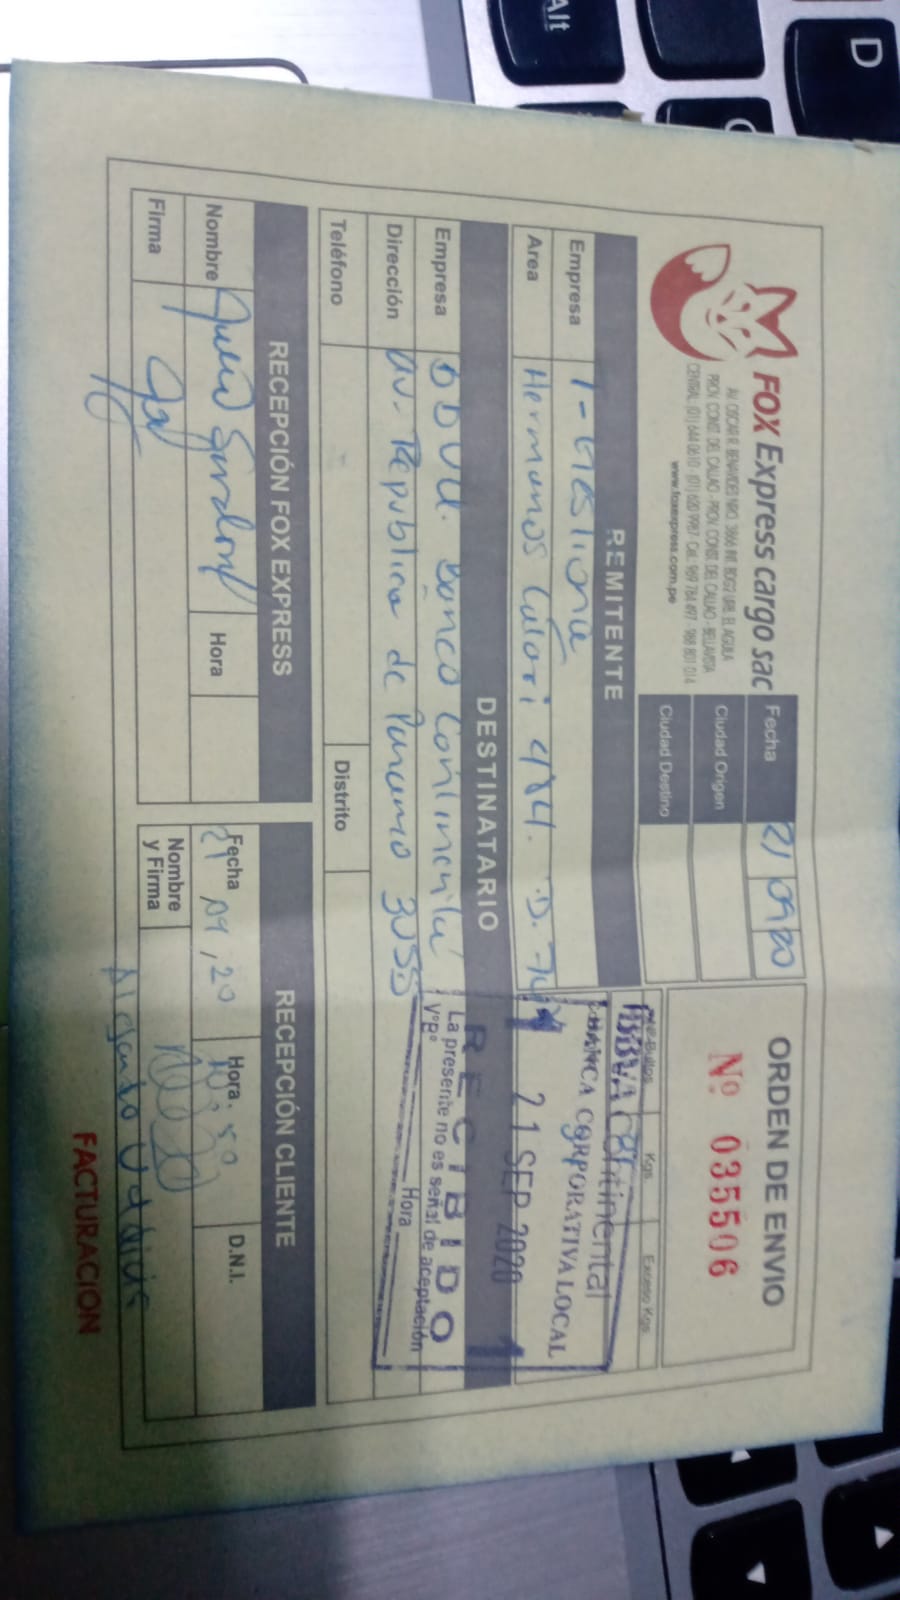 FOX Express cargo sac
AV. OSCAR R. BENAVIDES NRO. 3866 INT. BDG2 URB. EL AGUILA
PROV. CONST. DEL CALLAO - PROV. CONST. DEL CALLAO - BELLAVISTA
CENTRAL: (01) 644 0610 - (01) 620 9987 Cal. 969 784 497 - 988 801 014
www.foxexpress.com.pe
Fecha 21 09 20
Ciudad Origen
Ciudad Destino
ORDEN DE ENVIO
Nº 035506
Nº Bultos Kgs. Exceso Kgs.
REMITENTE
Empresa
Area Hermanos 484.
BBVA Continental
BANCA CORPORATIVA LOCAL
21 SEP 2020
RECIBIDO
La presente no es señal de aceptación
VºBº Hora
DESTINATARIO
Empresa BBVA. Banco Continental
Dirección Av. República de Panamá 3055
Teléfono Distrito
RECEPCIÓN FOX EXPRESS
Nombre Hora
Firma
RECEPCIÓN CLIENTE
Fecha 21, 09, 20 Hora. D.N.I.
Nombre
y Firma
FACTURACION